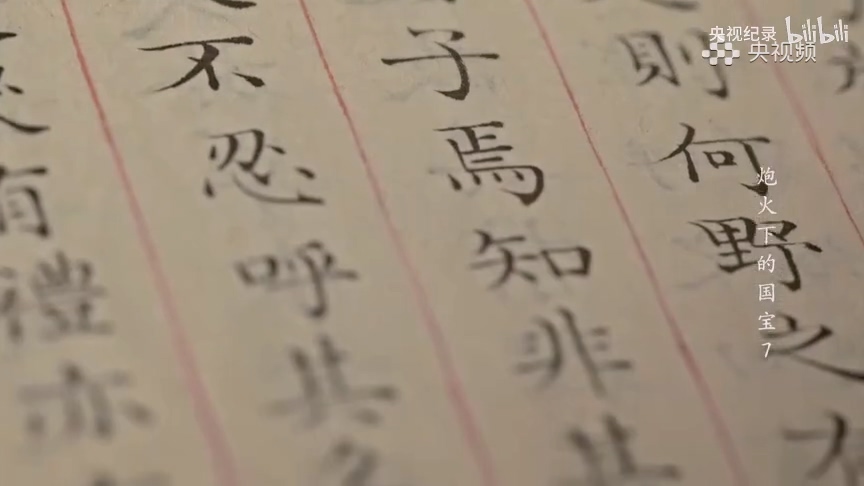 央视纪录 bilibili
央视频
炮火下的国宝7
則何野之
子焉知非其
不忍呼其
有禮亦